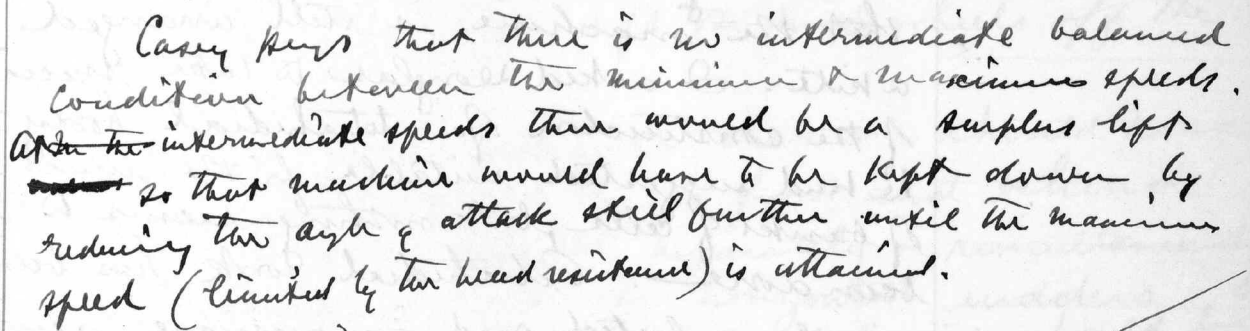 Casey says that there is no intermediate balanced
condition between the minimum & maximum speeds.
At In the intermediate speeds there would be a surplus lift
so that machine would have to be kept down by
reducing the angle of attack still further until the maximum
speed (limited by the head resistance) is attained.